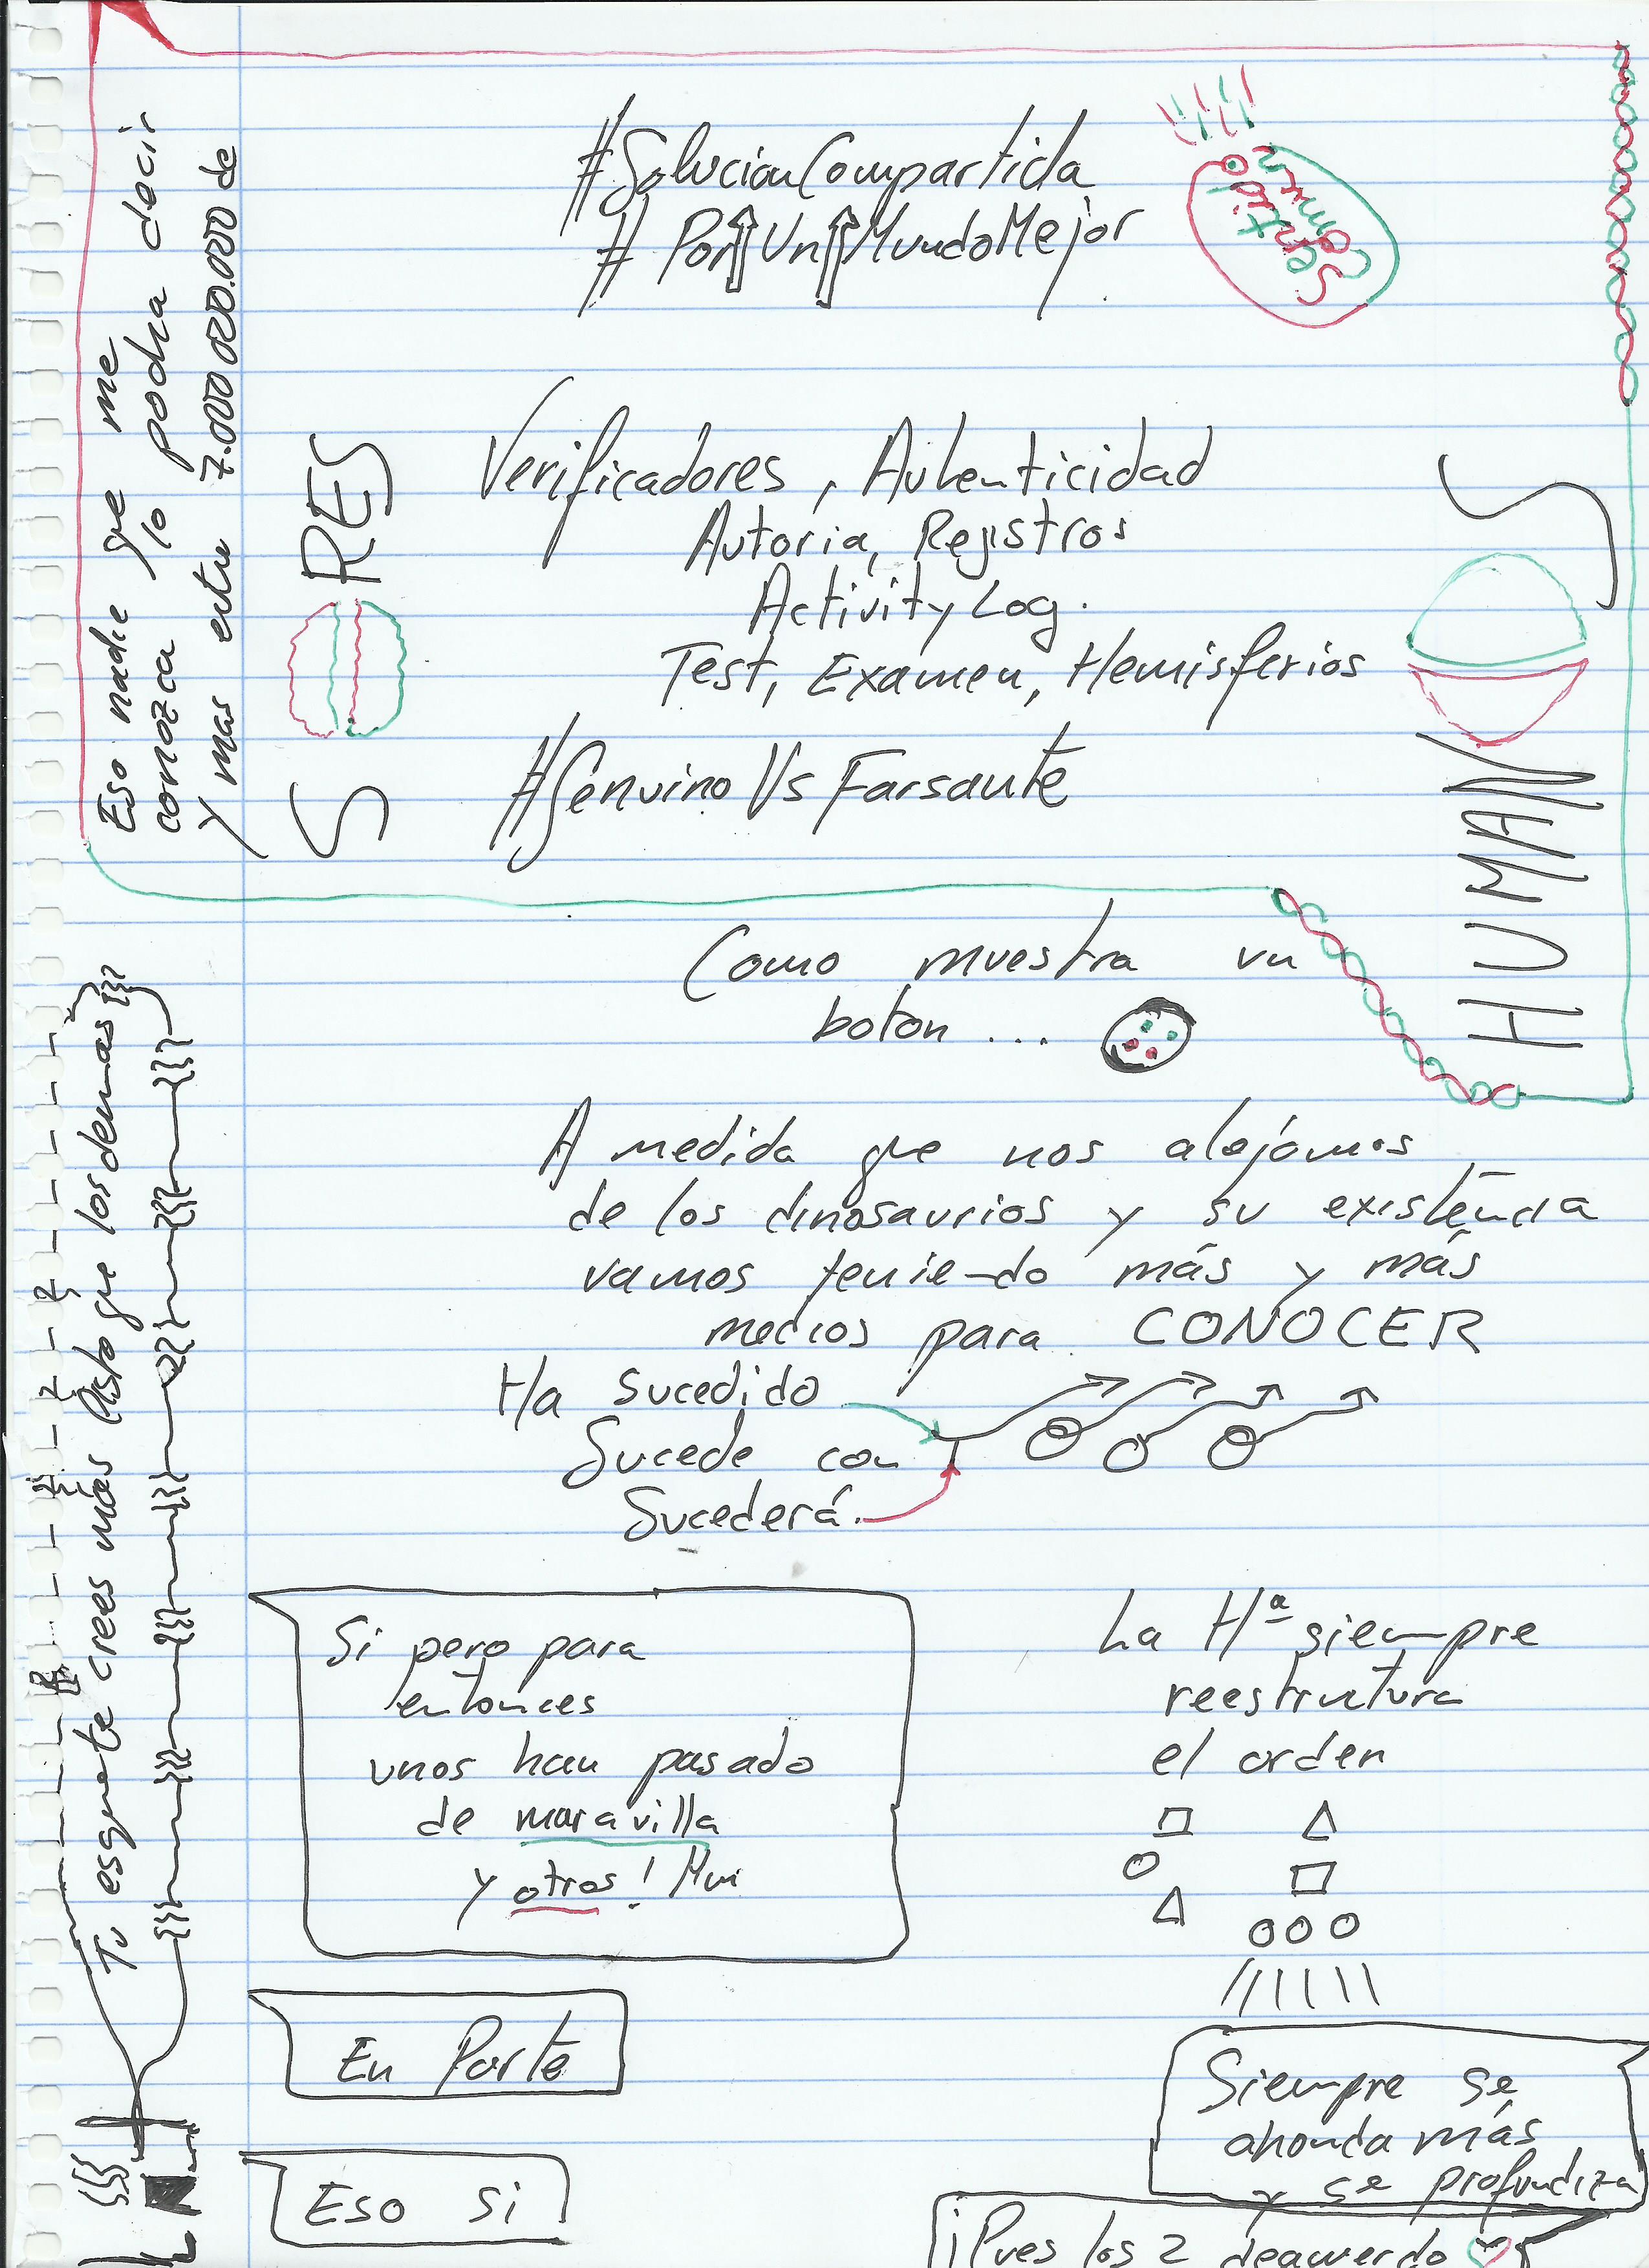 #SolucionCompartida
#Por Un MundoMejor
Sentido
Común
Eso nadie que me
conozca lo podra decir
y mas entre 7.000 000.000 de
S RES
HUMAN S
Verificadores, Autenticidad
Autoria, Registros
Activity Log.
Test, Examen, Hemisferios
#Genuino Vs Farsante
Como muestra un
boton ...
A medida que nos alejamos
de los dinosaurios y su existencia
vamos teniendo más y más
medios para CONOCER
Ha sucedido
Sucede con
Sucederá.
Tu esque te crees más listo que los demas
Si pero para
entonces
unos han pasado
de maravilla
y otros! Mui
La Hª siempre
reestructura
el orden
En Parte
Eso si
Siempre se
ahonda más
y se profundiza
¡Pues los 2 deacuerdo